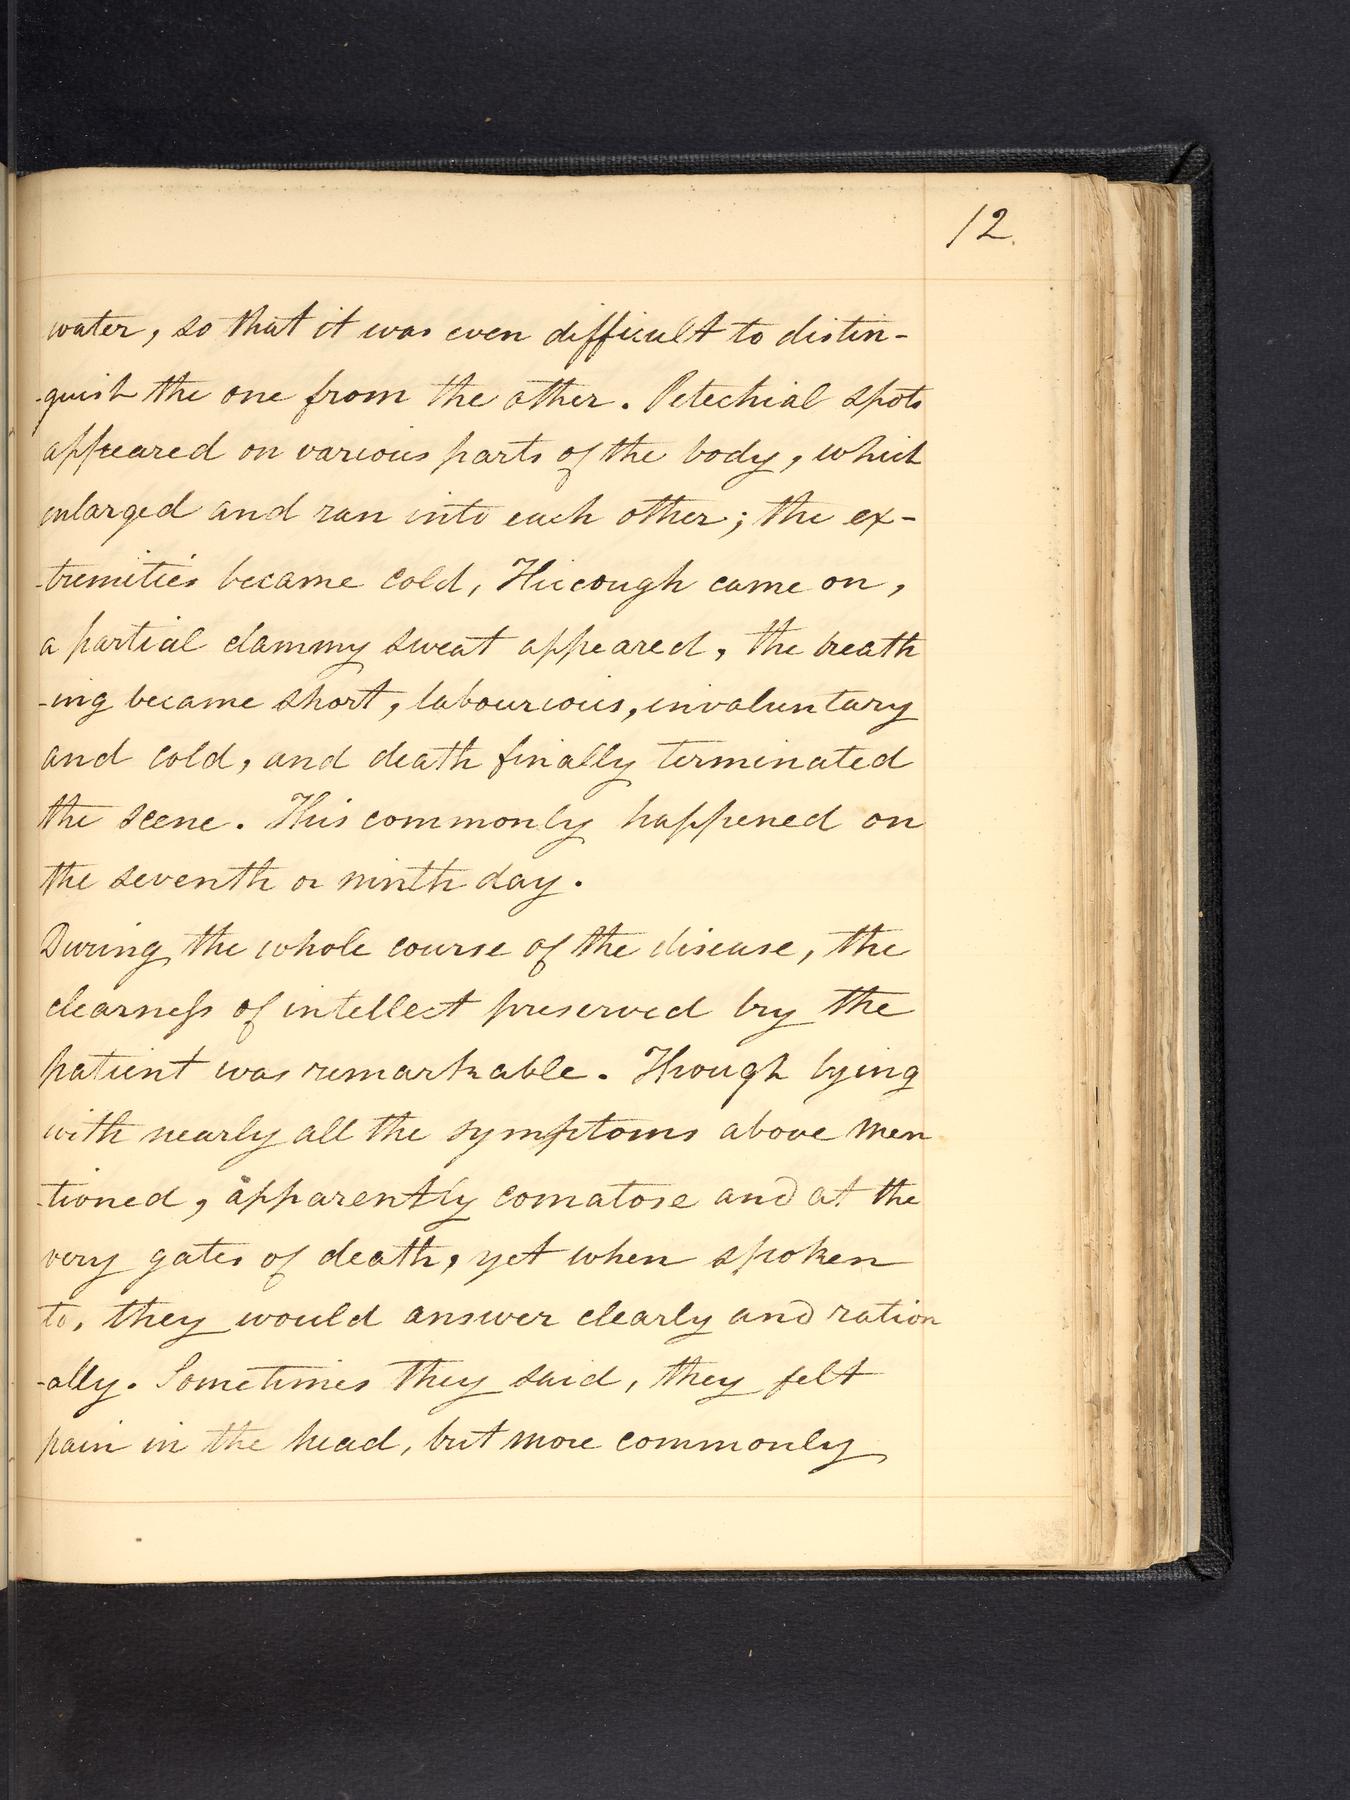 12.
water, so that it was even difficult to distin-
-guish the one from the other. Petechial spots
appeared on various parts of the body, which
enlarged and ran into each other; the ex-
-tremities became cold, Hiccough came on,
a partial clammy sweat appeared, the breath
-ing became short, labourious, involuntary
and cold, and death finally terminated
the scene. This commonly happened on
the seventh or ninth day.
During the whole course of the disease, the
clearneſs of intellect preserved by the
patient was remarkable. Though lying
with nearly all the symptoms above men
-tioned, apparently comatose and at the
very gates of death, yet when spoken
to, they would answer clearly and ration
-ally. Sometimes they said, they felt
pain in the head, but more commonly